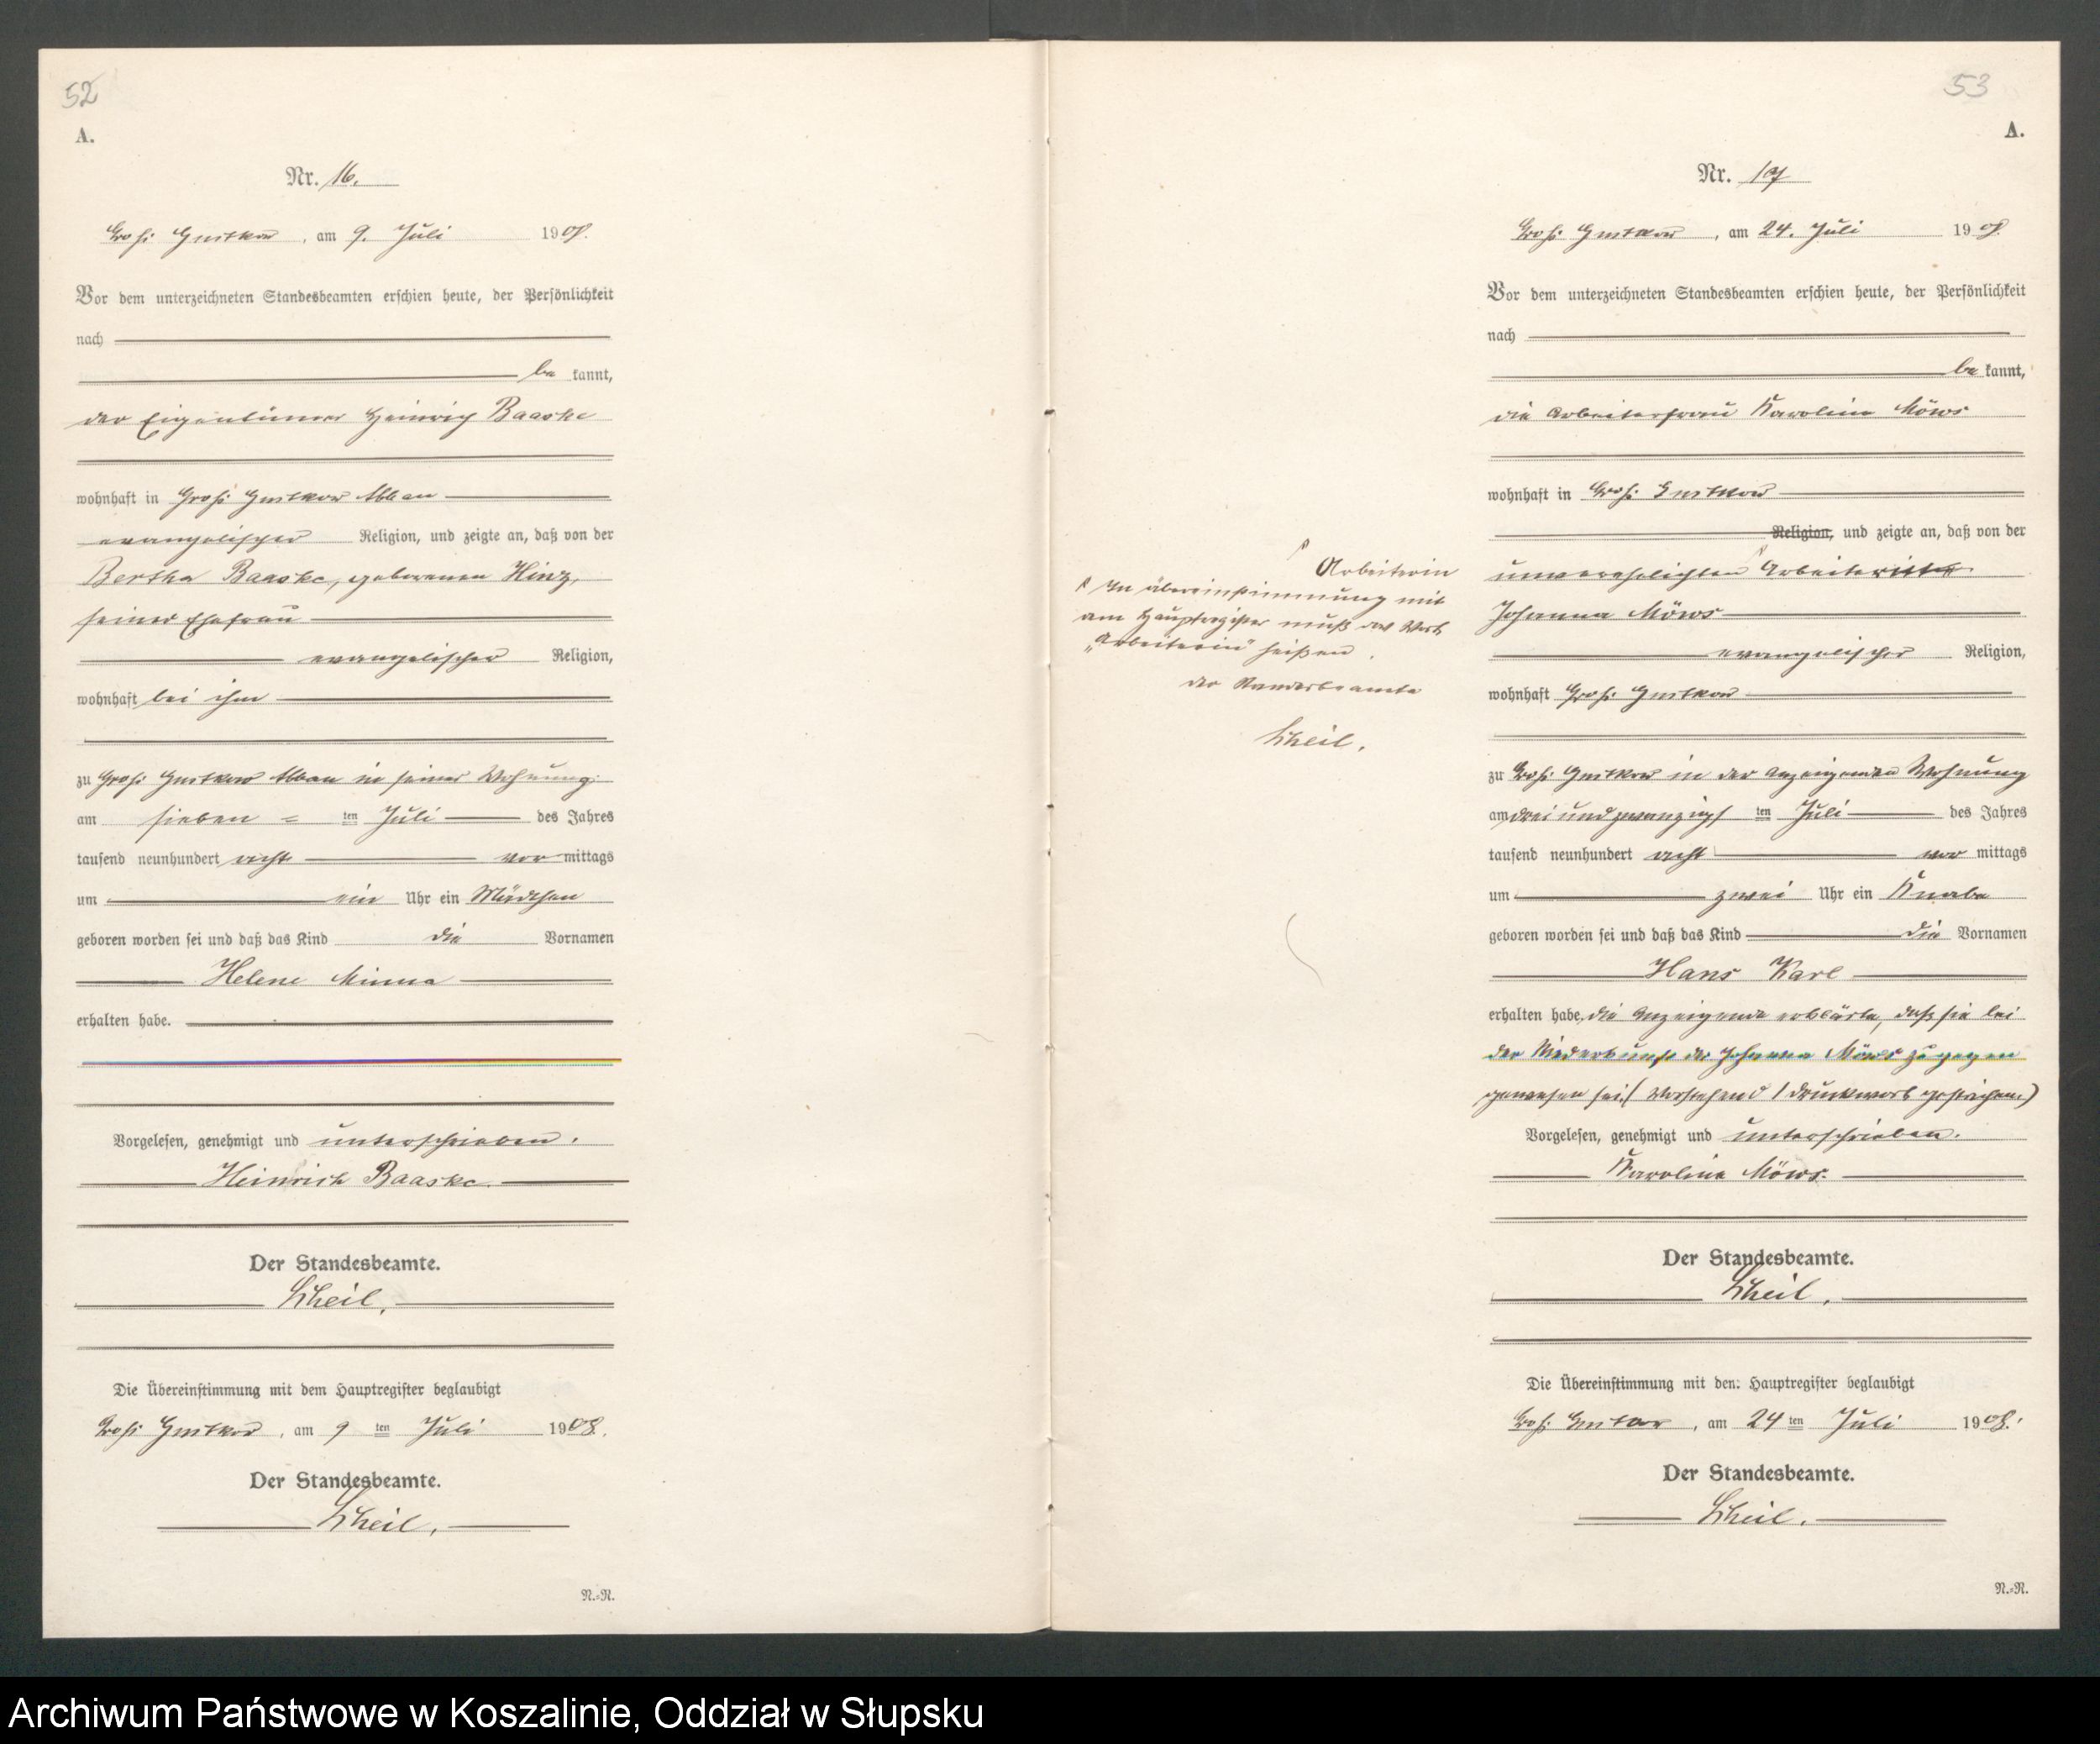 52
A.
Nr. 16.
Groß Gustkow, am 9. Juli 1908.
Vor dem unterzeichneten Standesbeamten erschien heute, der Persönlichkeit
nach
be kannt,
der Eigentümer Heinrich Baaske
wohnhaft in Groß Gustkow Abbau
evangelischer Religion, und zeigte an, daß von der
Bertha Baaske, geborenen Hinz,
seiner Ehefrau
evangelischer Religion,
wohnhaft bei ihm
zu Groß Gustkow Abbau in seiner Wohnung
am sieben ten Juli des Jahres
tausend neunhundert acht vor mittags
um ein Uhr ein Mädchen
geboren worden sei und daß das Kind die Vornamen
Helene Minna
erhalten habe.
Vorgelesen, genehmigt und unterschrieben.
Heinrich Baaske.
Der Standesbeamte.
Scheil.
Die Übereinstimmung mit dem Hauptregister beglaubigt
Groß Gustkow, am 9 ten Juli 1908.
Der Standesbeamte.
Scheil.
N.=N.
Arbeiterin
In Übereinstimmung mit
am Hauptregister muß das Wort
„Arbeiterin" heißen.
der Standesbeamte
Scheil.
53
A.
Nr. 17
Groß Gustkow, am 24. Juli 1908
Vor dem unterzeichneten Standesbeamten erschien heute, der Persönlichkeit
nach
be kannt,
die Arbeiterfrau Karoline Möws
wohnhaft in Groß Gustkow
Religion, und zeigte an, daß von der
unverehelichten
Johanna Möws
evangelischer Religion,
wohnhaft Groß Gustkow
zu Groß Gustkow in der anzeigenden Wohnung
am dreiundzwanzigs ten Juli des Jahres
tausend neunhundert acht vor mittags
um zwei Uhr ein Knabe
geboren worden sei und daß das Kind die Vornamen
Hans Karl
erhalten habe, die Anzeigende erklärte, daß sie bei
der Niederkunft der Johanna Möws zugegen
gewesen sei. (Vorstehend 1 Druckwort gestrichen.)
Vorgelesen, genehmigt und unterschrieben.
Karoline Möws.
Der Standesbeamte.
Scheil.
Die Übereinstimmung mit dem Hauptregister beglaubigt
Groß Gustkow, am 24 ten Juli 1908.
Der Standesbeamte.
Scheil.
N.=N.
Archiwum Państwowe w Koszalinie, Oddział w Słupsku